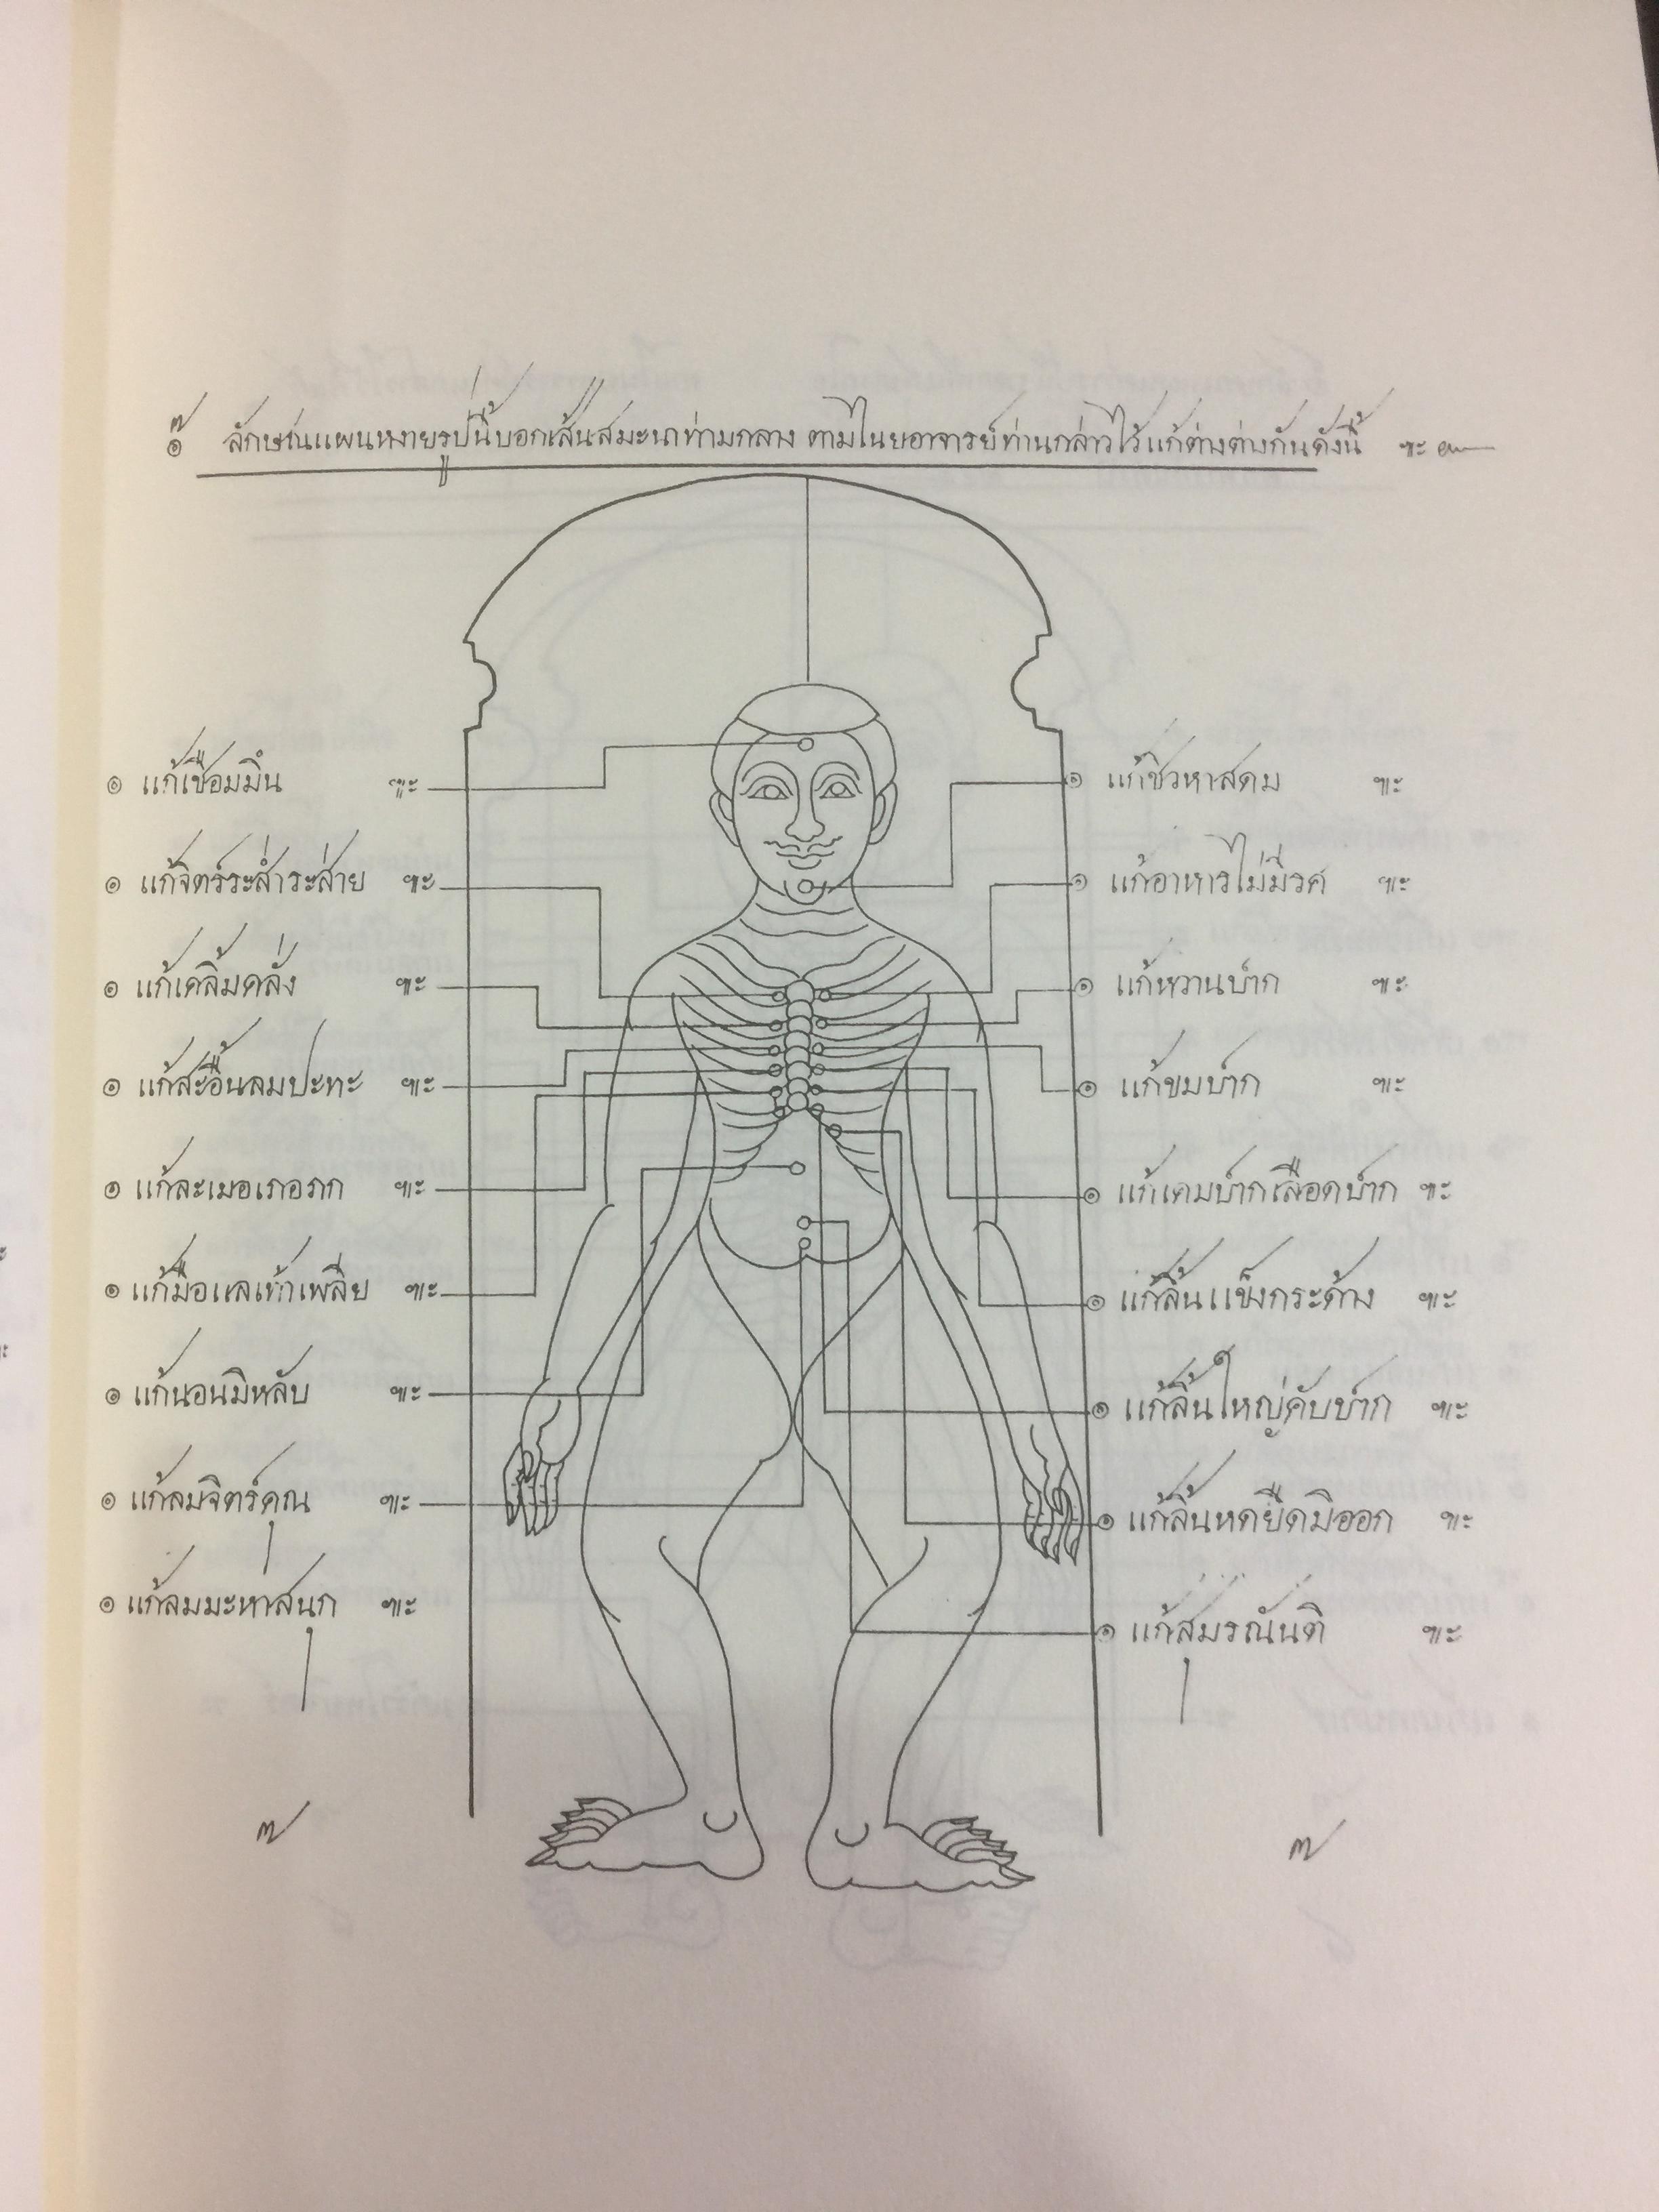 ๏ ลักษณแผนหงายรูปนี้บอกเส้นสมะนาท่ามกลาง ตามไนยอาจารย์ท่านกล่าวไว้แก้ต่างต่างกันดังนี้ ฯะ๛
๏ แก้เชื่อมมึน ฯะ
๏ แก้จิตร์ระส่ำระส่าย ฯะ
๏ แก้เคลิ้มคลั่ง ฯะ
๏ แก้สะอื้นลมปะทะ ฯะ
๏ แก้ละเมอเภอภก ฯะ
๏ แก้มือแลเท้าเพลีย ฯะ
๏ แก้นอนมิหลับ ฯะ
๏ แก้ลมจิตร์คุณ ฯะ
๏ แก้ลมมะหาสนุก ฯะ
๏ แก้ชิวหาสดม ฯะ
๏ แก้อาหารไม่มีรศ ฯะ
๏ แก้หวานปาก ฯะ
๏ แก้ขมปาก ฯะ
๏ แก้เคมปากเลือดปาก ฯะ
๏ แก้ลิ้นแข็งกระด้าง ฯะ
๏ แก้ลิ้นใหญ่คับปาก ฯะ
๏ แก้ลิ้นหดยืดมิออก ฯะ
๏ แก้สุมรณันติ ฯะ